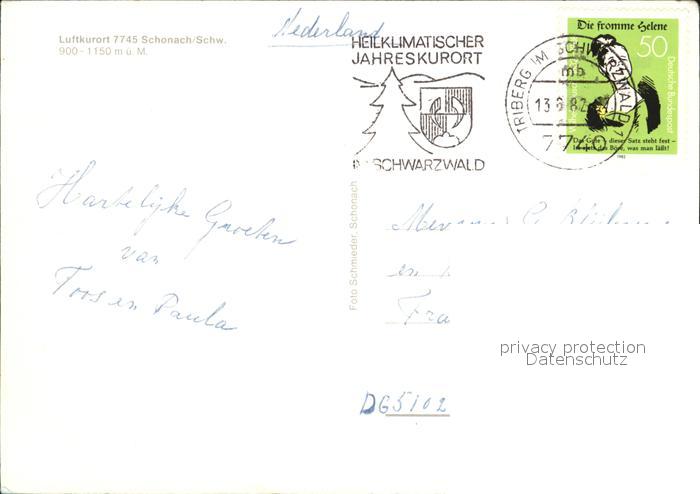 Luftkurort 7745 Schonach/Schw.
900-1150 m ü. M.
Nederland
HEILKLIMATISCHER
JAHRESKURORT
SCHWARZWALD
TRIBERG IM SCHWARZWALD 1
mb
13.6.82
77
Die fromme Helene
50
Deutsche Bundespost
Das Gute – dieser Satz steht fest –
ist stets das Böse, was man läßt!
1982
Hartelijke Groeten
van
Toos en Paula
Foto Schmieder, Schonach
en
Fra
privacy protection
Datenschutz
DG5102